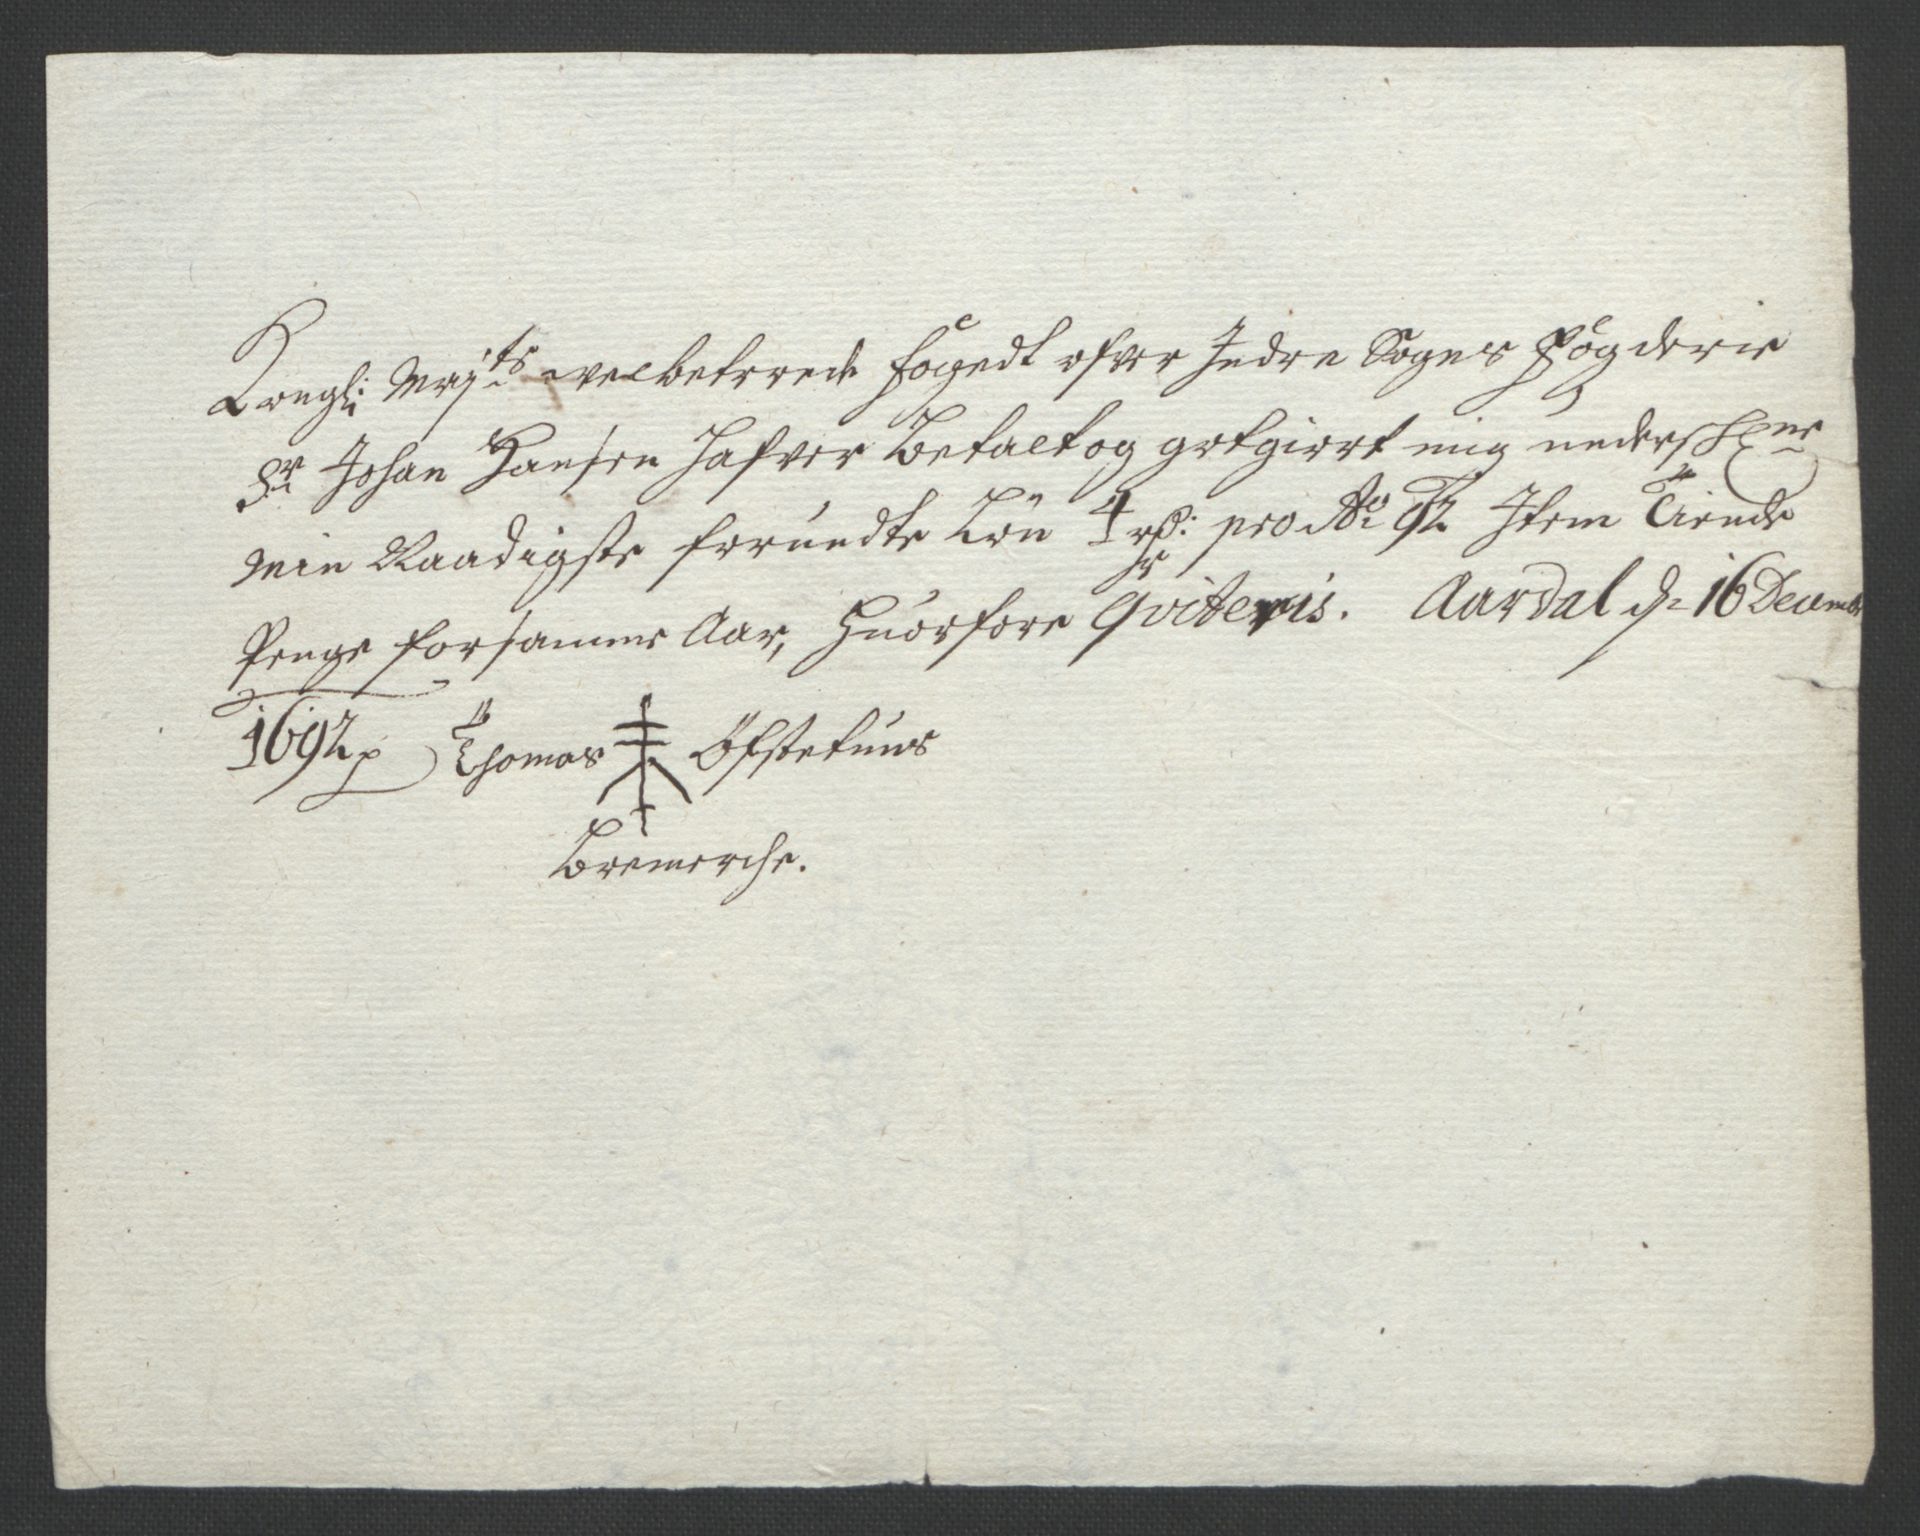 Kongl: Maj:ts welbetrrede fogedt ofver Indre Sogns fögderie
Sr Johan Hansen Hafver Betalt og gotgiort mig undersch:ne
min Naadigste forundte Lön 4 rd: pro Ao 92 Item Tiende
Penge for samme Aar, Huorfore Qviteris. Aardal d: 16 Decembr
1692 Thomas Ofstetuns
Bomerche.